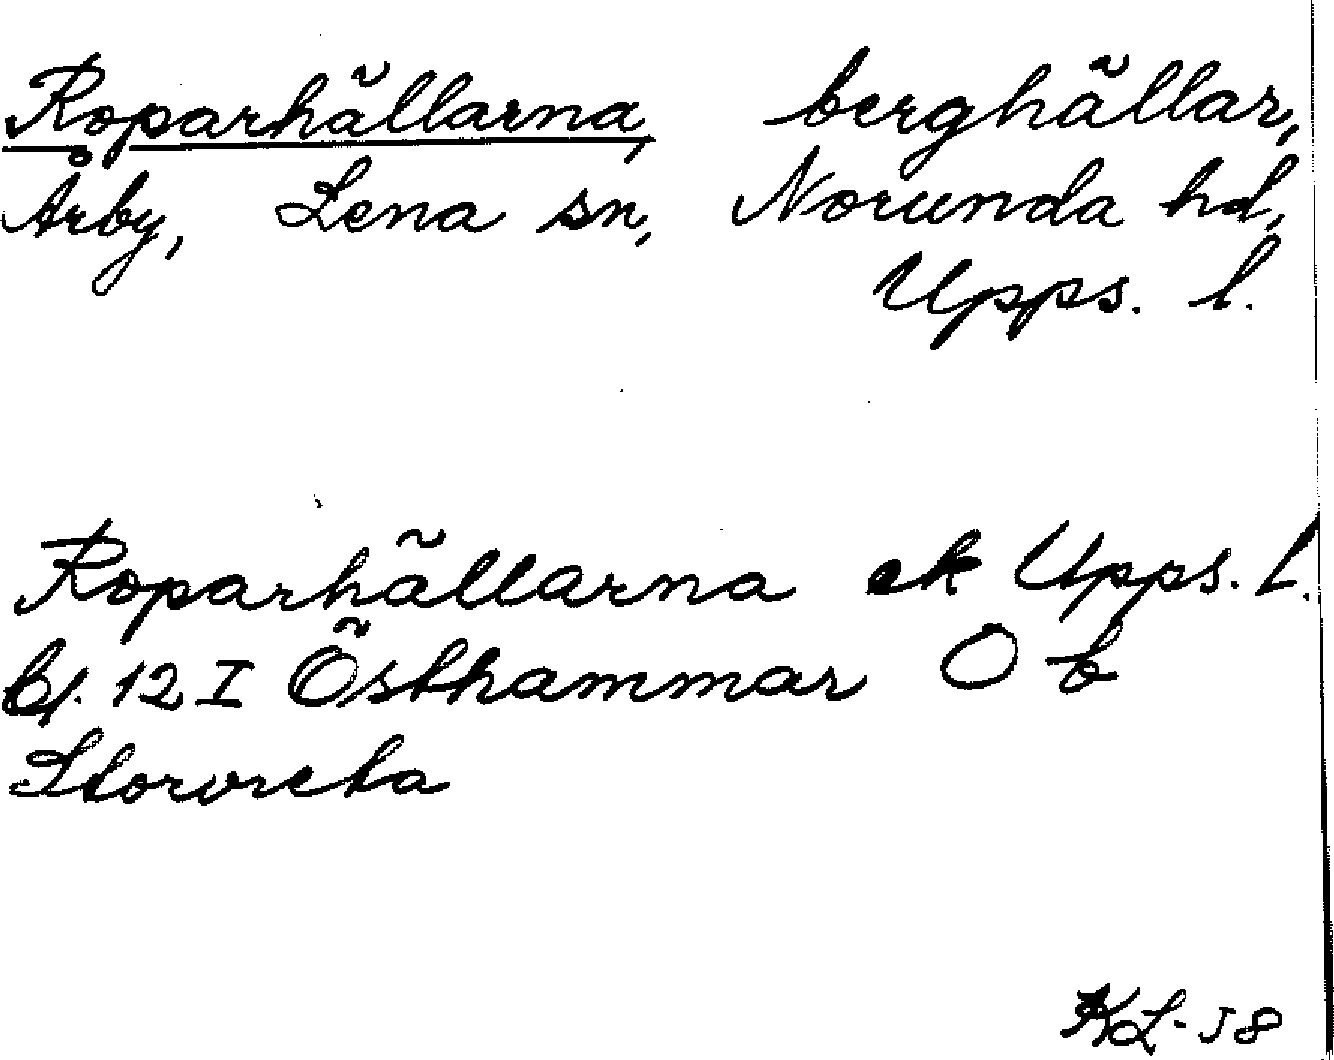 Roparhällarna, berghällar,
Årby, Lena sn, Norunda hd,
Upps. l.
Roparhällarna ek Upps. L.
bl. 12 I Östhammar O b
Storvreta
KL-58